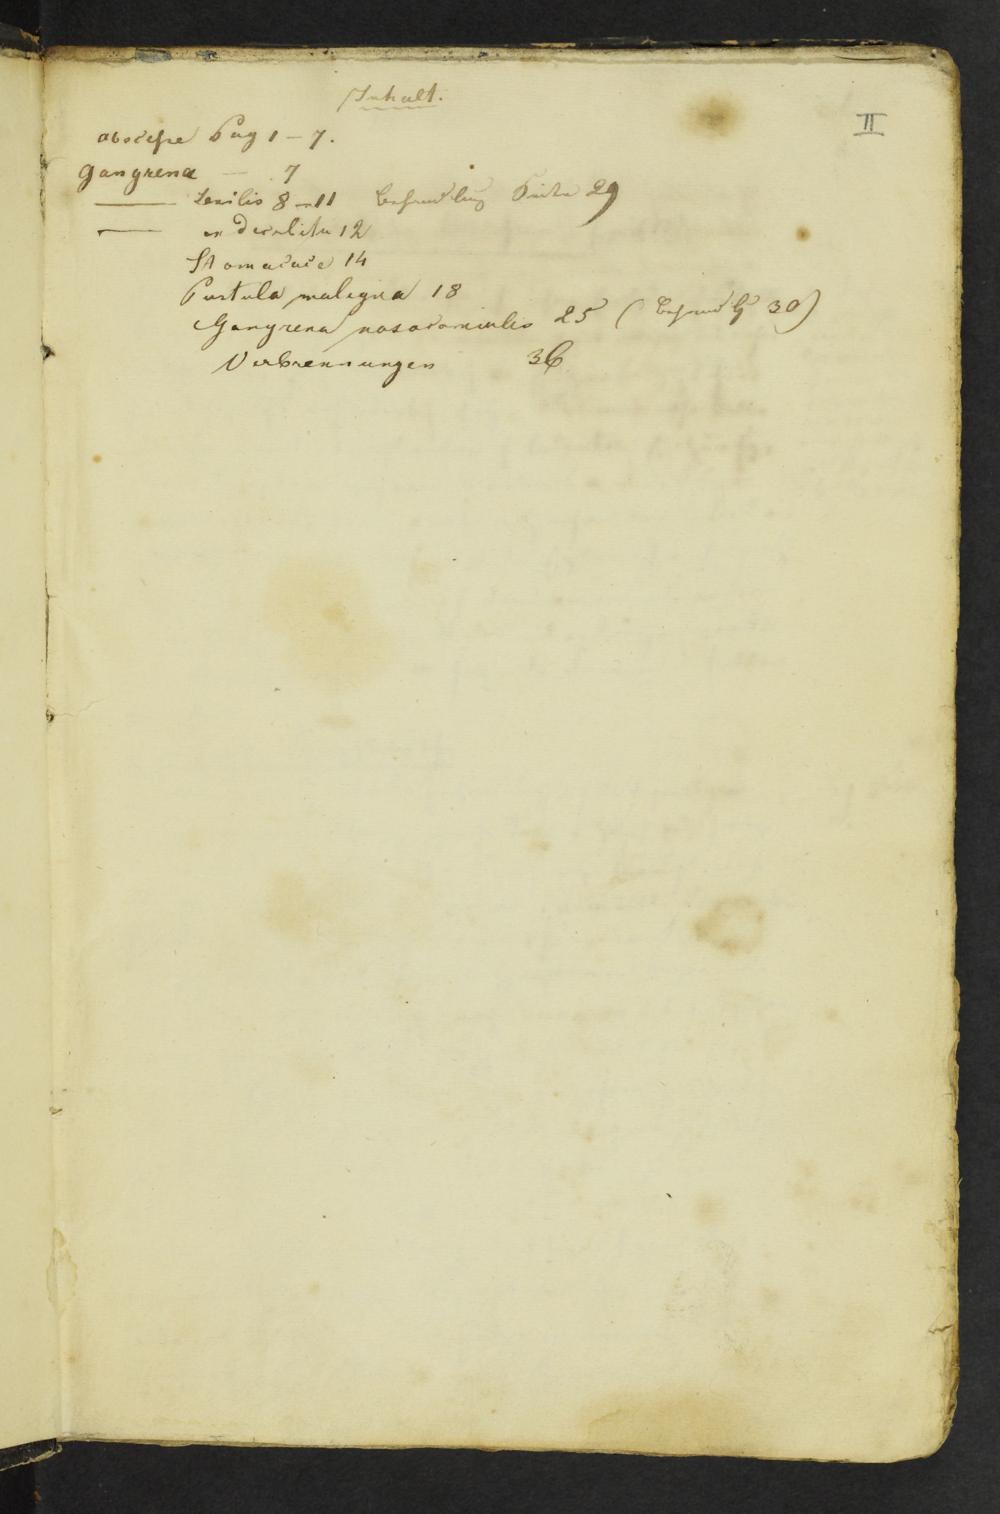 Inhalt.
II
abscesse Pag 1 – 7.
gangrena — 7
— senilis 8 – 11 Behandlung Seite 29
— ex decubitu 12
Stomacace 14
Pustula maligna 18
Gangrena nosocomialis 25 (Behandlg 30)
Verbrennungen 36